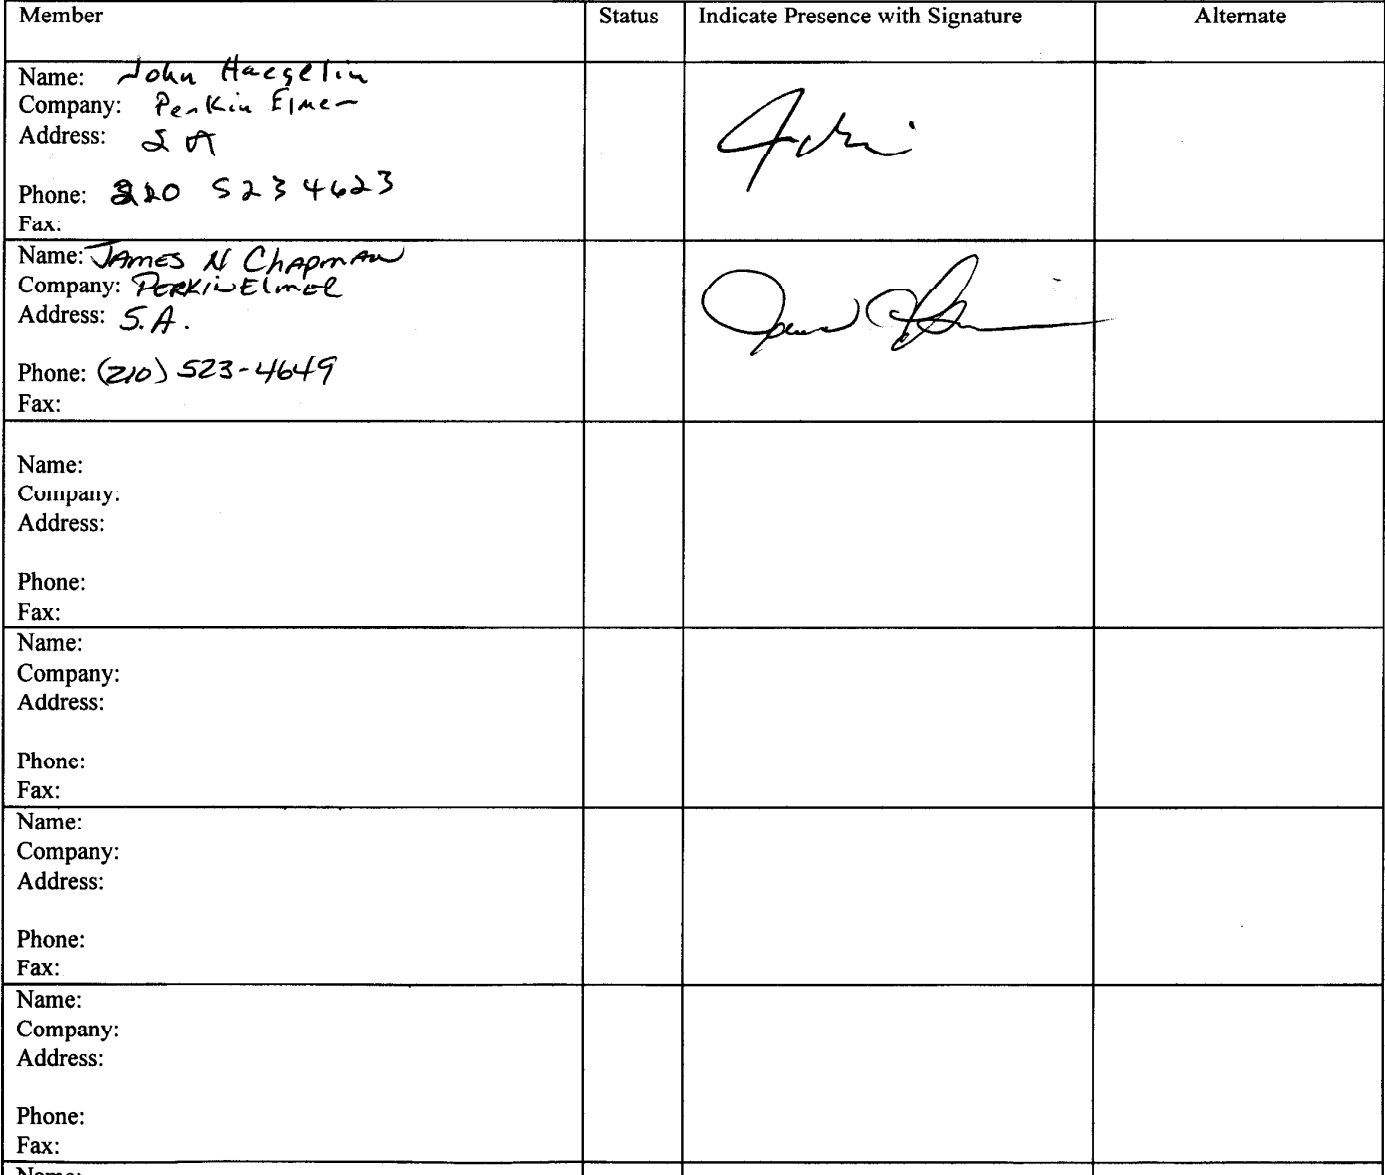 Member Status Indicate Presence with Signature Alternate
Name: John Haegelin
Company: Perkin Elmer
Address: S A
Phone: 210 523 4623
Fax:
Name: JAMES N CHAPMAN
Company: PERKINElmer
Address: S.A.
Phone: (210) 523-4649
Fax:
Name:
Company:
Address:
Phone:
Fax:
Name:
Company:
Address:
Phone:
Fax:
Name:
Company:
Address:
Phone:
Fax:
Name:
Company:
Address:
Phone:
Fax:
Name: